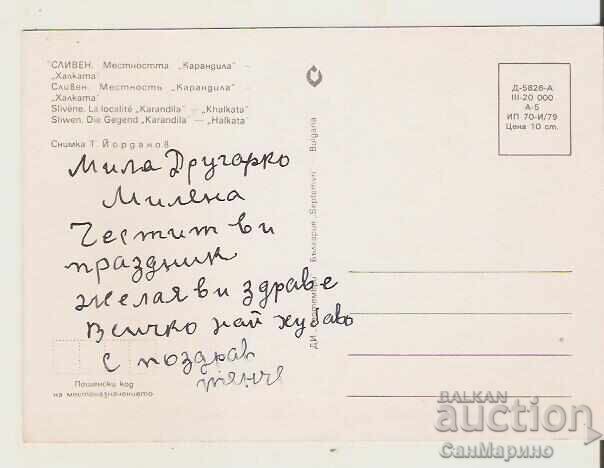 СЛИВЕН. Местността „Карандила" –
„Халката"
Сливен. Местность „Карандила" –
„Халката"
Slivène. La localité „Karandila" – „Khalkata"
Sliwen. Die Gegend „Karandila" – „Halkata"
Снимка Т. Йорданов
Мила Другарко
Милена
Честит ви
празник
желая ви здраве
всичко най хубаво
с поздрав
Пощенски код
на местоназначението
ДИ „Септември" България „Septemvri" Bulgaria
Д-5826-А
III-20 000
А-5
ИП 70-И/79
Цена 10 ст.
BALKAN
auction
СанМарино